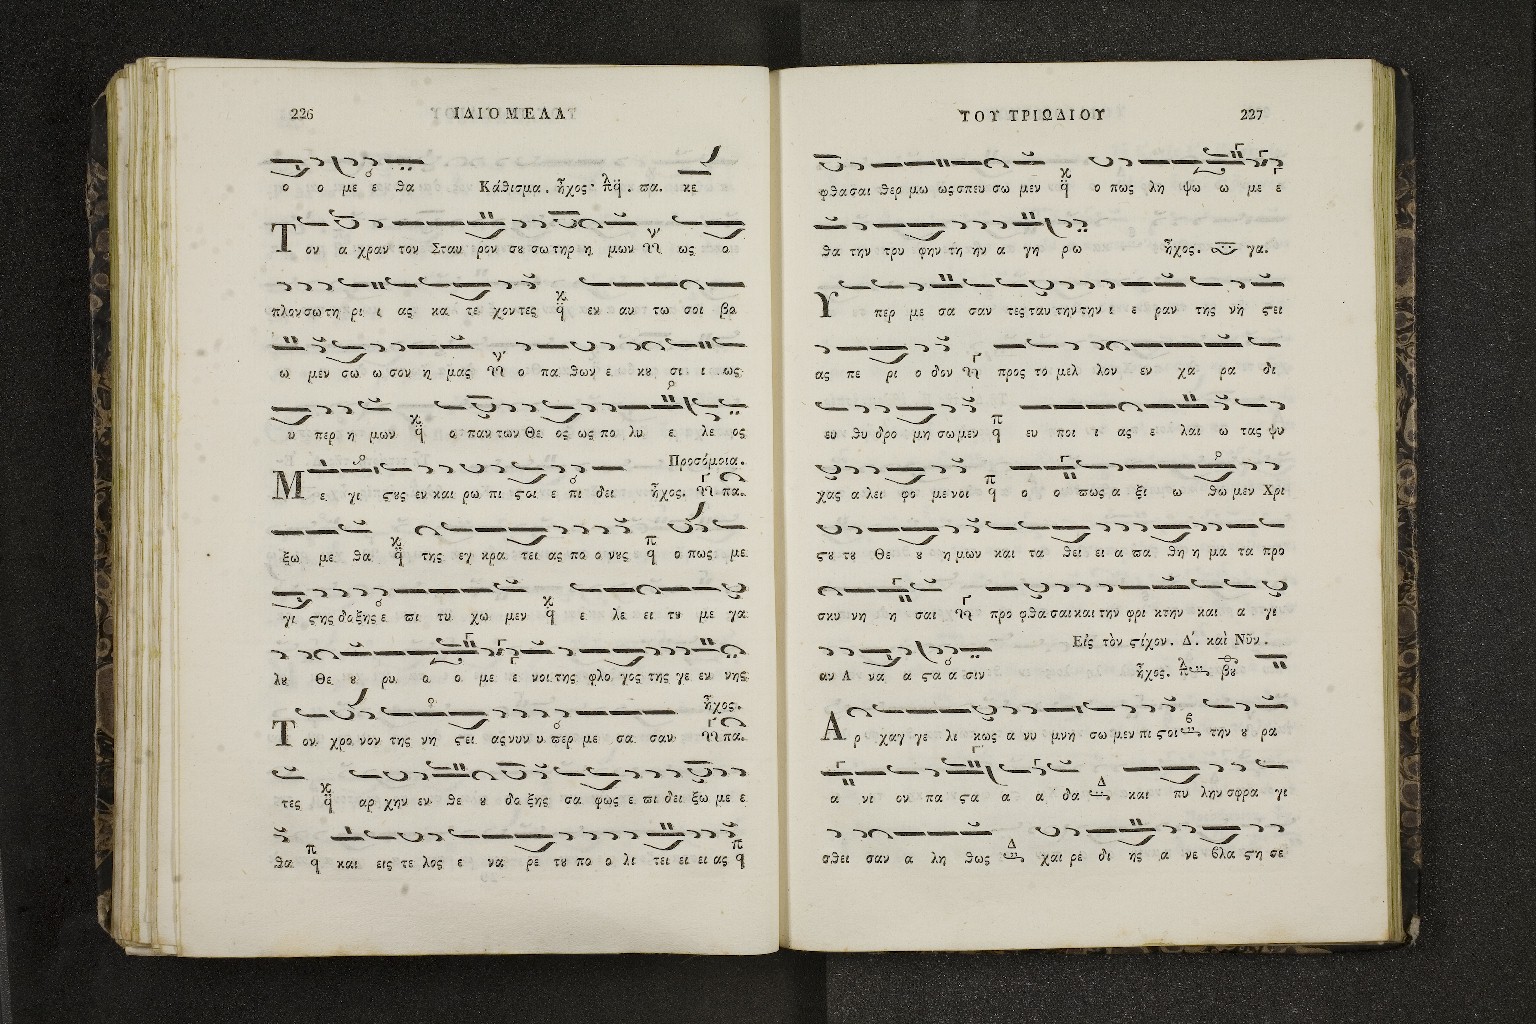 226
ΙΔΙΟΜΕΛΑ
ο ο με ε θα Κάθισμα. ἦχος πα. κε
Τον α χραν τον Σταυ ρον σȣ σω τηρ η μων ως ο
πλον σω τη ρι ι ας κα τε χον τες εν αυ τω σοι βο
ω μεν σω ω σον η μας ο πα θων ε κȣ σι ι ως
υ περ η μων ο παν των Θε ος ως πο λυ ε λε ος
Προσόμοια.
Με γι ϛȣς εν και ρω πι ϛοι ε πι δει ἦχος. πα.
ξω με θα της εγ κρα τει ας πο ο νȣς ο πως με
γι ϛης δο ξης ε πι τυ χω μεν ε λε ει τȣ με γα
λȣ Θε ȣ ρυ ο ο με ε νοι της φλο γος της γε εν νης
ἦχος.
Τον χρο νον της νη ϛει ας νυν υ περ με σα σαν πα.
τες αρ χην εν θε ȣ δο ξης σα φως ε πι δει ξω με ε
θα και εις τε λος ε να ρε τȣ πο ο λι τει ει ει ας
ΤΟΥ ΤΡΙΩΔΙΟΥ
227
φθα σαι θερ μω ως σπευ σω μεν ο πως λη ψω ω με ε
θα την τρυ φην τη ην α γη ρω ἦχος. γα.
Υπερ με σα σαν τες ταυ την την ι ε ραν της νη ϛει
ας πε ρι ο δον προς το μελ λον εν χα ρα δι
ευ θυ δρο μη σω μεν ευ ποι ι ας ε λαι ω τας ψυ
χας α λει φο με νοι ο ο πως α ξι ω θω μεν Χρι
ϛȣ τȣ Θε ȣ η μων και τα θει ει α πα θη η μα τα προ
σκυ νη η σαι προ φθα σαι και την φρι κτην και α γι
Εἰς τὸν ϛίχον. Δ΄. καὶ Νῦν.
αν Α να α ϛα α σιν ἦχος. βȣ
Αρ χαγ γε λι κως α νυ μνη σω μεν πι ϛοι την ȣ ρα
α νι ον πα ϛα α α δα και πυ λην σφρα γι
σθει σαν α λη θως χαι ρε δι ης α νε βλα ϛη σε